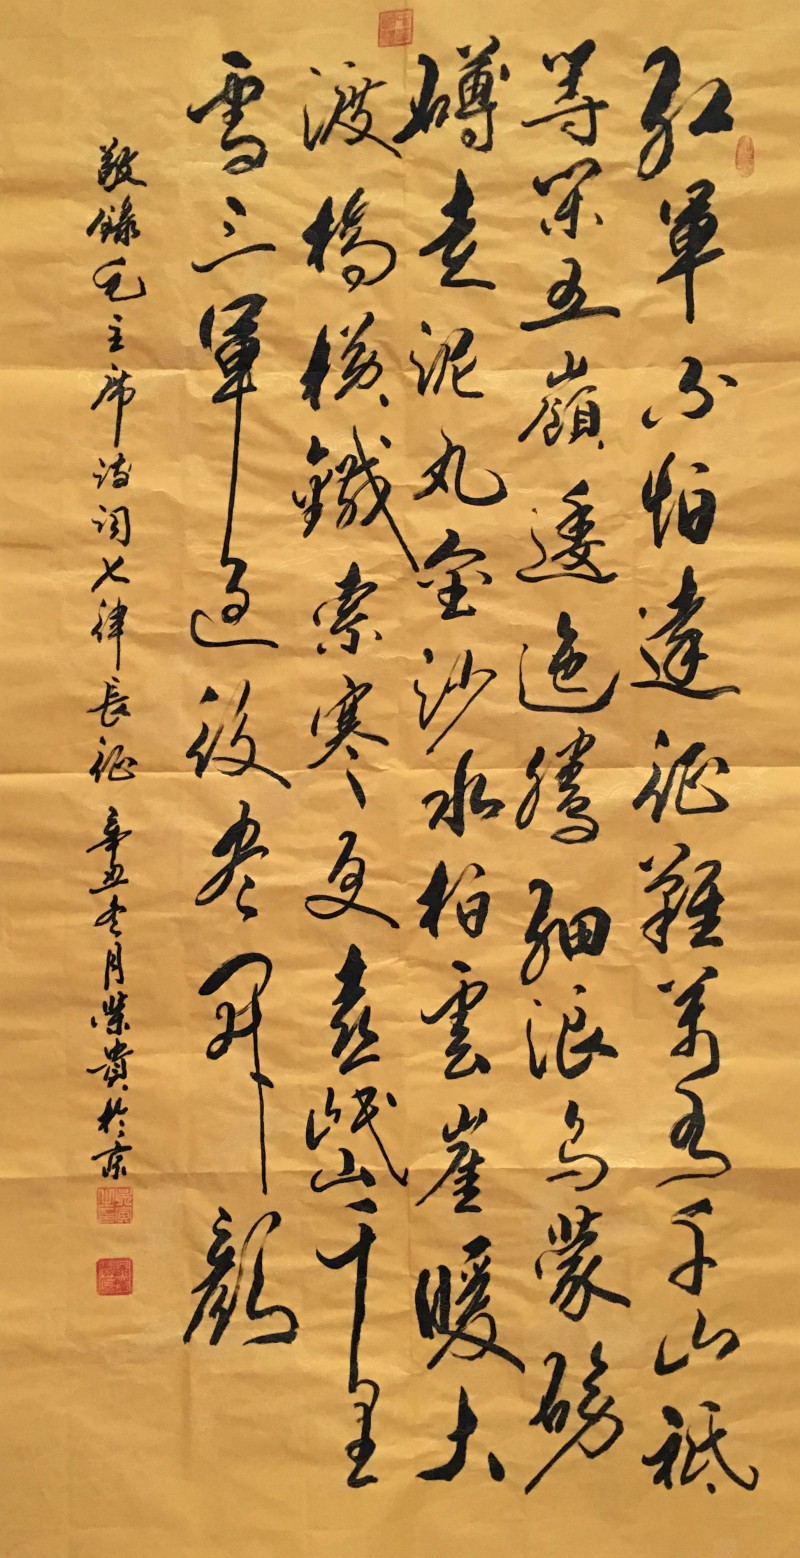 紅軍不怕遠征難萬水千山祗
等閑五嶺逶迤騰細浪烏蒙磅
礴走泥丸金沙水拍雲崖暖大
渡橋橫鐵索寒更喜岷山千里
雪三軍過後盡開顏
敬錄毛主席詩詞七律長征 辛丑冬月榮貴於京